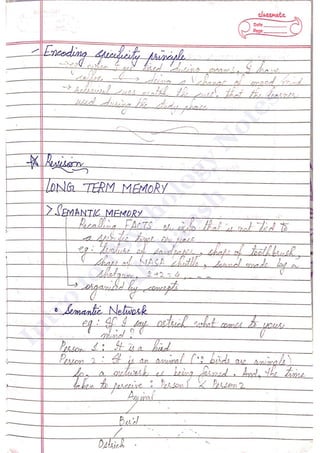 classmate
Date
Page
- Encoding specificity principle
→ when I get tired during exams, I have
coffee
→ retrieval cues match the cues that the learner
used during the study phase
Revision
LONG TERM MEMORY
> SEMANTIC MEMORY
Recalling FACTS or info that is not tied to
a specific time or place
eg: texture of sandpaper, shape of toothbrush,
shape of NASA shuttle, sound made by a
shotgun, 2+2=4
→ organised by concepts
• Semantic Network
eg: If I say ostrich what comes to your
mind?
Person 1: It is a bird
Person 2: It is an animal (∵ birds are animals)
So, a network is being formed. And, the time
taken to perceive: Person 1 < Person 2
Animal
Bird
Ostrich